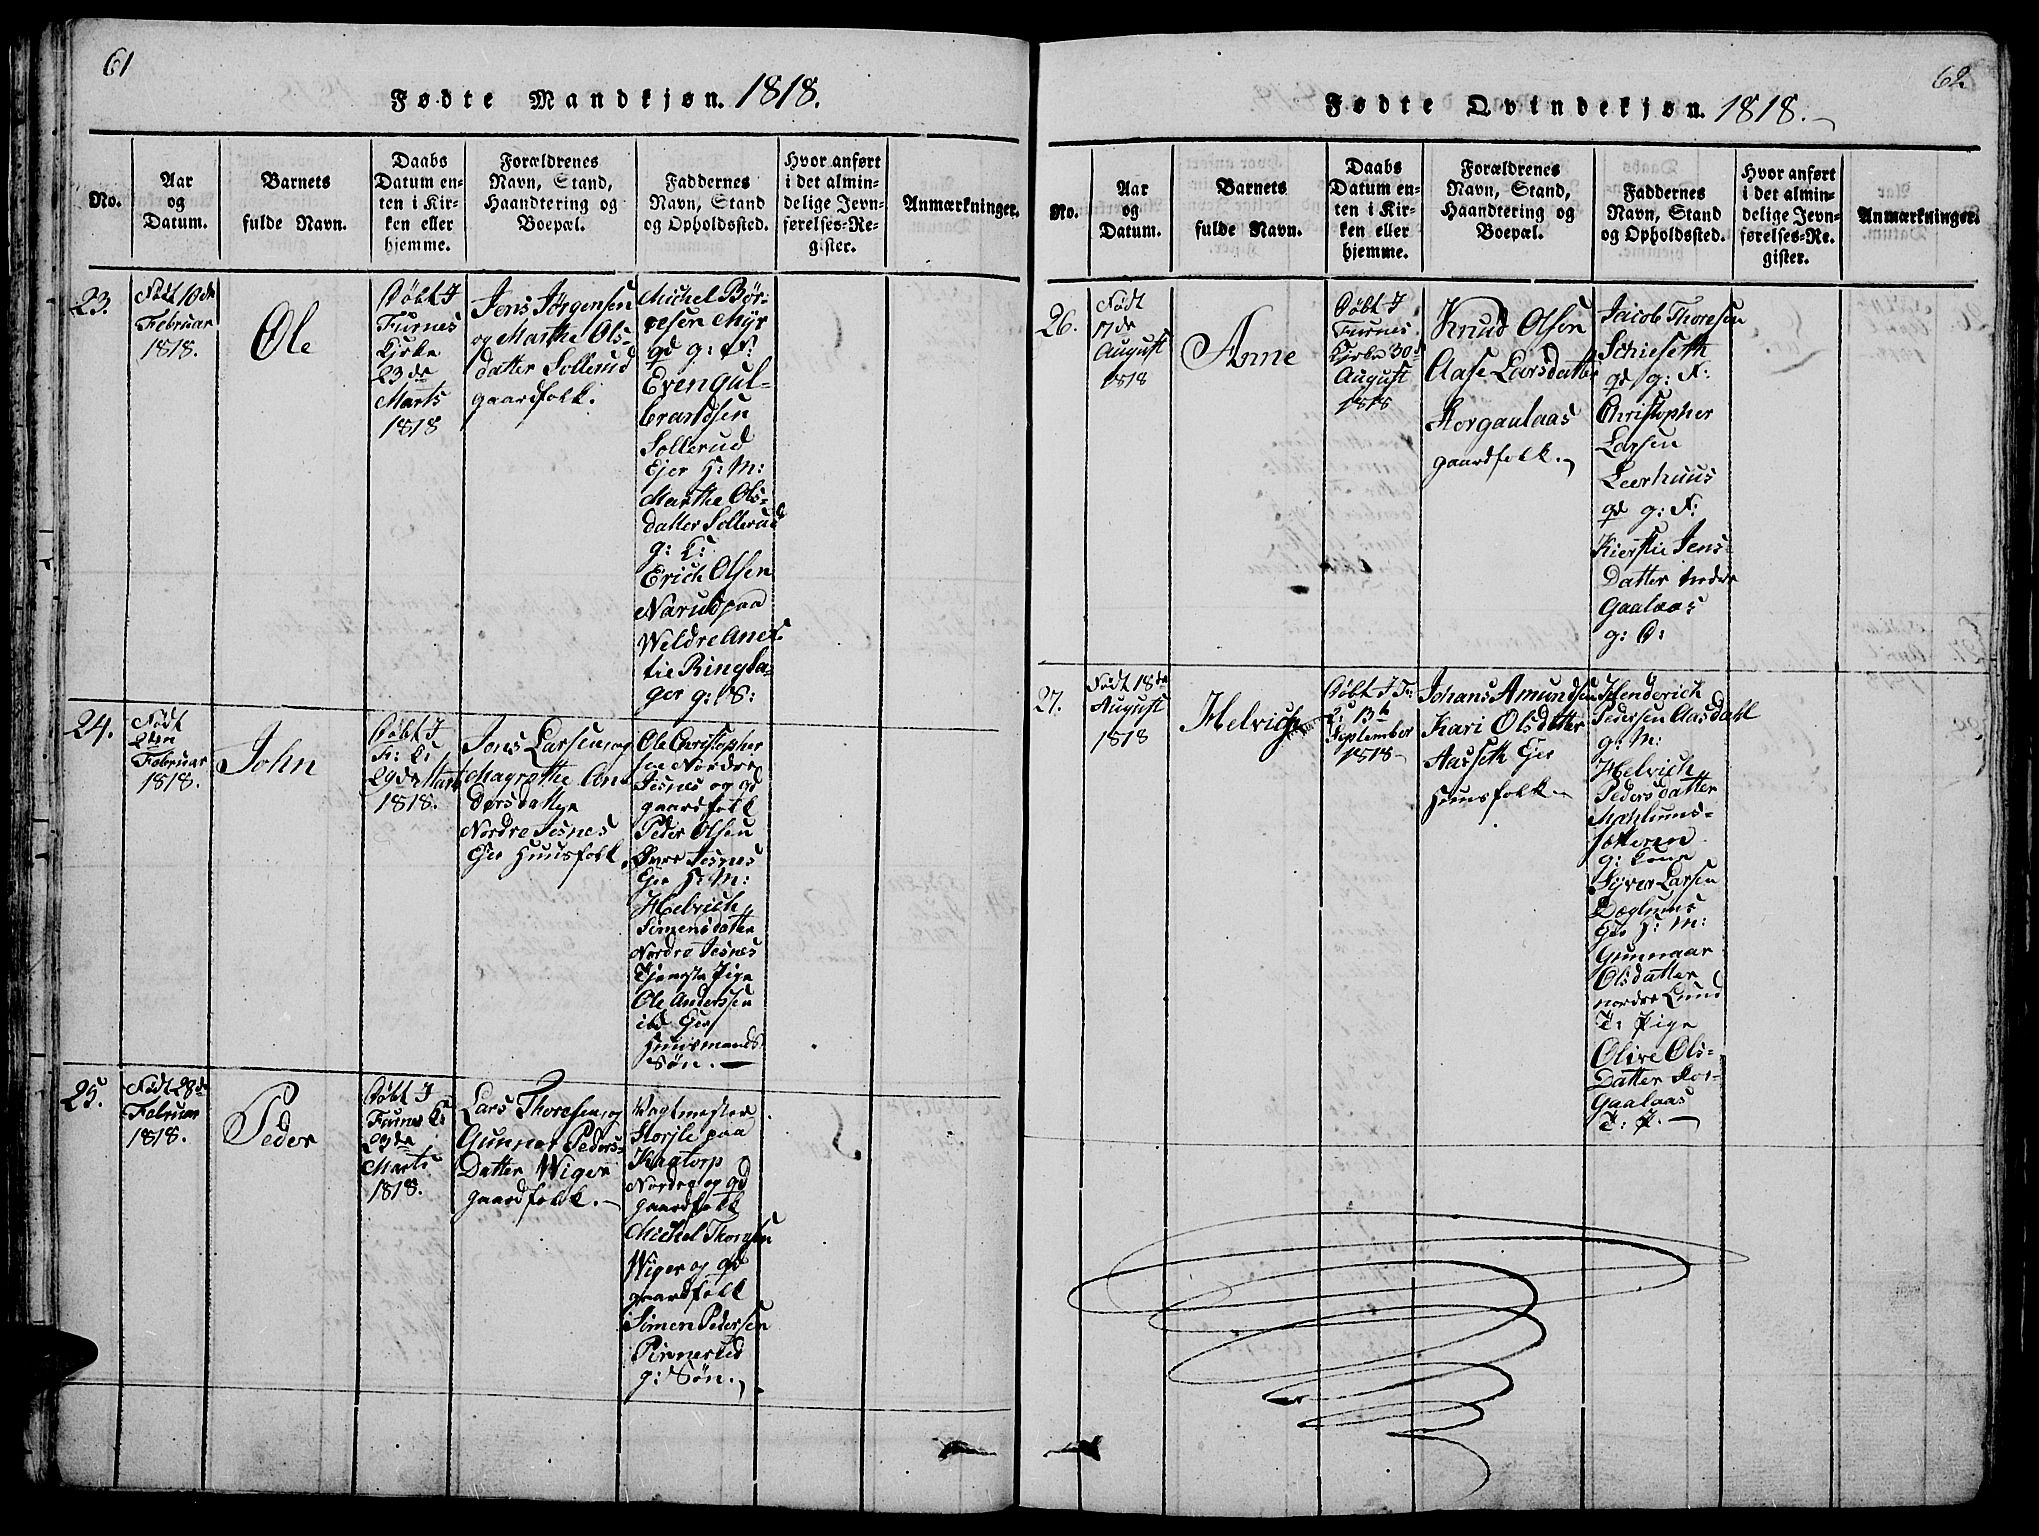 61
Fødte Mandkjøn. 1818.
No.
Aar
og
Datum.
Barnets
fulde Navn.
Daabs
Datum en-
ten i Kir-
ken eller
hjemme.
Forældrenes
Navn, Stand,
Haandtering og
Boepæl.
Faddernes
Navn, Stand
og Opholdssted.
Hvor anført
i det almin-
delige Jevn-
førelses-Re-
gister.
Anmærkninger.
23.
Født 10de
Februar
1818.
Ole
Døbt I
Furnes
Kirke
23de
Marts
1818
Jens Jørgensen
og Marthe Ols-
datter Sollerud
gaardfolk.
Michel Bør-
resen Myr
gd g: K:
Even Gul-
brandsen
Sollerud
Ejer H: M:
Marthe Ols-
datter Sollerud
g: K:
Erich Olsen
Narud paa
Weldre Anes-
tie Ringsa-
ger g: S:
24.
Født
2den
Februar
1818.
John
Døbt I
F: K:
29de Marts
1818.
Jens Larsen og
Magrethe An-
dersdatter
Nordre Jesnes
Ejer Huusfolk
Ole Christopher
sen Nordre
Jesnes og gd
gaardfolk
Peder Olsen
Øvre Jesnes
Ejer H: M:
Helvich
Simensdatter
Nordre Jesnes
Tjeneste Pige
Ole Anderssen
ibd Ejer
Huusmands
Søn.
25.
Født 28de
Februar
1818.
Peder
Døbt I
Furnes K:
29de
Marts
1818.
Lars Thoresen og
Gunnor Peders-
Datter Wiger
gaardfolk.
Wagtmester
Storjle paa
Kaatorp
Nordre og gd
gaardfolk
Michel Thoresen
Wiger og gd
gaardfolk
Simen Pedersen
Pinnerud
g: Søn.
62
Fødte Qvindekjøn. 1818.
No.
Aar
og
Datum.
Barnets
fulde Navn.
Daabs
Datum en-
ten i Kir-
ken eller
hjemme.
Forældrenes
Navn, Stand,
Haandtering og
Boepæl.
Faddernes
Navn, Stand
og Opholdssted.
Hvor anført
i det almin-
delige Jevn-
førelses-Re-
gister.
Anmærkninger.
26.
Født
17de
August
1818
Anne
Døbt I
Furnes
Kirke 30de
August
1818
Knud Olsen
Aase Larsdatter
Korgaulaas
gaardfolk.
Jacob Thoresen
Schieseth
gd g: K:
Christopher
Larsen
Leerhuus
gd g: K:
Kierstie Jens
Datter nedre
Gaalaas
g: D:
27.
Født 18de
August
1818
Helvich
Døbt I F:
K: 13de
September
1818
Johans Amundsen
Kari Olsdatter
Aasseth Ejer
Huusfolk
Henderich
Pedersen Aasdahl
g: M:
Helvich
Pedersdatter
g: Kone
Syver Larsen
Dæglunds
Ejer H: M:
Gunnaar
Olsdatter
nordre Lund
T: Pige
Olive Ols-
Datter Kor-
Gaalaas
T: P.